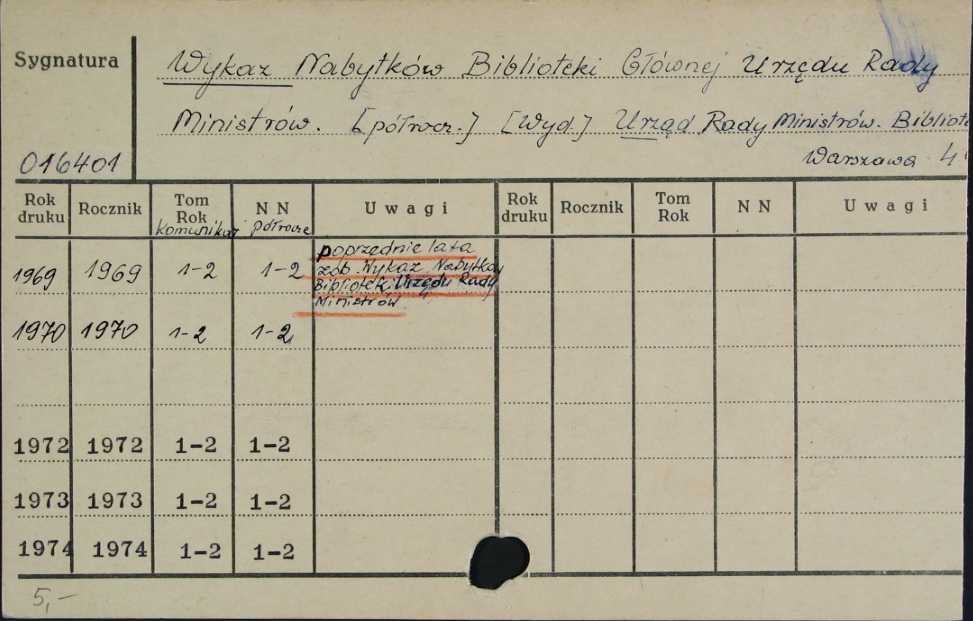 Sygnatura
Wykaz Nabytków Biblioteki Głównej Urzędu Rady
Ministrów. [półrocz.] [Wyd.] Urząd Rady Ministrów. Bibliote
016401
Warszawa 4
Rok druku Rocznik Tom Rok N N Uwagi Rok druku Rocznik Tom Rok N N Uwagi
komunikat półrocze
poprzednie lata
1969 1969 1-2 1-2 zob. Wykaz Nabytków
Biblioteki Urzędu Rady
Ministrów
1970 1970 1-2 1-2
1972 1972 1-2 1-2
1973 1973 1-2 1-2
1974 1974 1-2 1-2
5,-